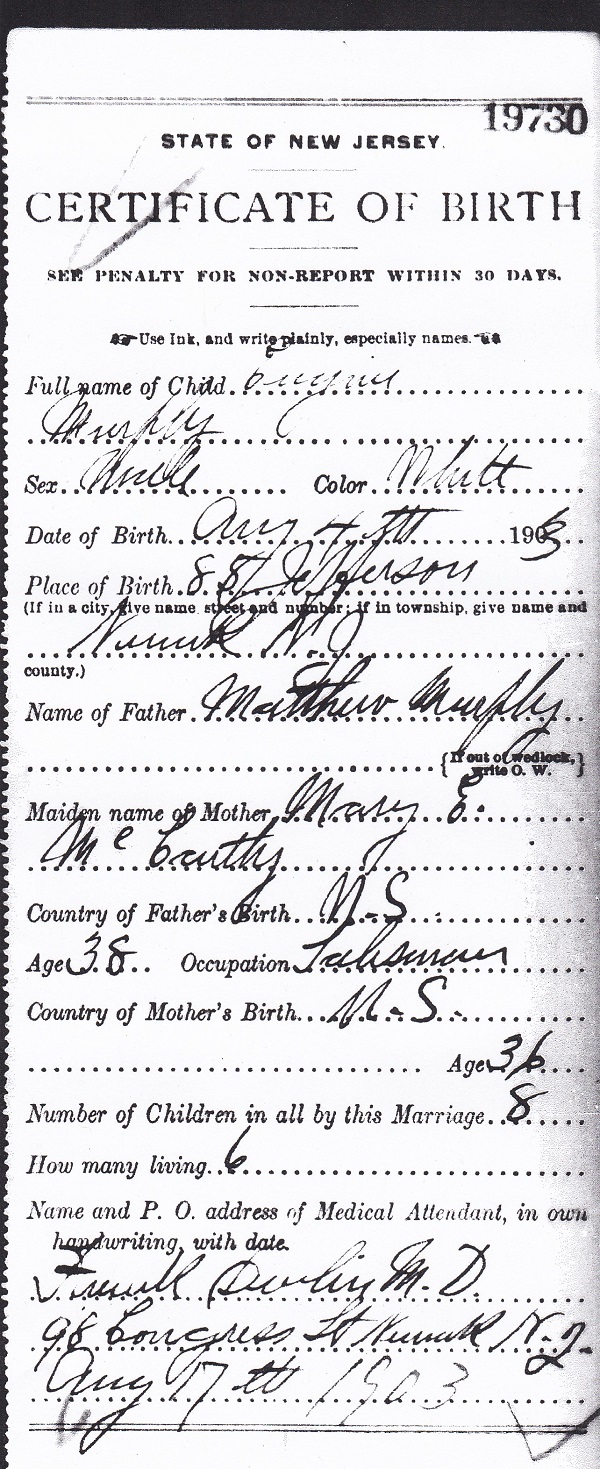 19730
STATE OF NEW JERSEY.
CERTIFICATE OF BIRTH
SEE PENALTY FOR NON-REPORT WITHIN 30 DAYS.
Use Ink, and write plainly, especially names.
Full name of Child Eugene
Murphy
Sex Male Color White
Date of Birth Aug 4th 1903
Place of Birth 88 Jefferson
(If in a city, give name, street and number; if in township, give name and
Newark N.J
county.)
Name of Father Matthew Murphy
{If out of wedlock, write O. W.}
Maiden name of Mother Mary E.
McCarthy
Country of Father's Birth U.S.
Age 38 Occupation Salesman
Country of Mother's Birth U.S.
Age 36
Number of Children in all by this Marriage 8
How many living 6
Name and P. O. address of Medical Attendant, in own
handwriting, with date.
Frank Devlin M.D.
98 Congress St Newark N.J.
Aug 17th 1903